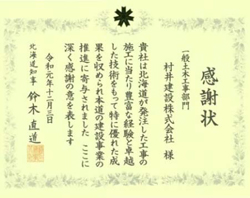 感謝状
一般土木工事部門
村井建設株式会社 様
貴社は北海道が発注した工事の
施工に当たり豊富な経験と卓越
した技術をもって特に優れた成
果を収められ本道の建設事業の
推進に寄与されました ここに
深く感謝の意を表します
令和元年十二月三日
北海道知事 鈴木直道